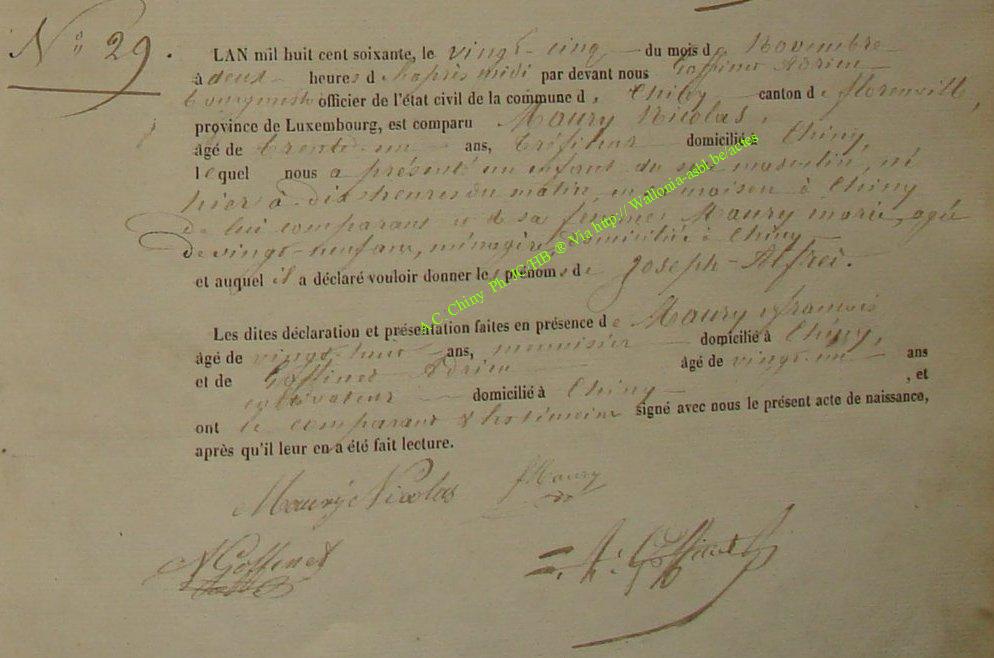 N° 29.
LAN mil huit cent soixante, le vingt-cinq du mois de Novembre
à deux heures d'après midi par devant nous Goffinet Adrien
bourgmestre officier de l'état civil de la commune de Chiny canton de florenville,
province de Luxembourg, est comparu Maury Nicolas,
âgé de trente-un ans, tréfileur domicilié à Chiny,
lequel nous a présenté un enfant du sexe masculin, né
hier à dix heures du matin, en sa maison à Chiny
de lui comparant et de sa femme Maury marie, agée
de vingt neuf ans, ménagère domiciliée à Chiny
et auquel il a déclaré vouloir donner les prénoms de Joseph-Alfred.
Les dites déclaration et présentation faites en présence de Maury françois
âgé de vingt-huit ans, menuisier domicilié à Chiny,
et de Goffinet Adrien âgé de vingt-un ans
cultivateur domicilié à Chiny , et
ont le comparant & les témoins signé avec nous le présent acte de naissance,
après qu'il leur en a été fait lecture.
Maury Nicolas fMaury
Goffinet
A.C. Chiny Ph JC HB @ Via http://Wallonia-asbl.be/actes